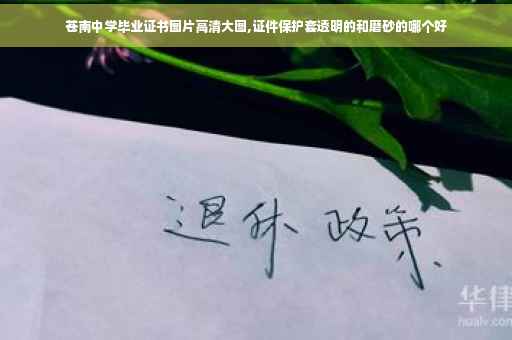 苍南中学毕业证书图片高清大图,证件保护套透明的和磨砂的哪个好
退休 政策
华律
hualv.com